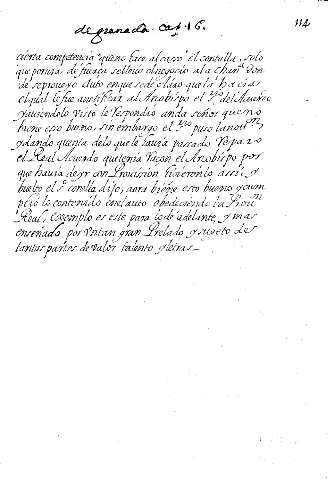 de granada. Cap. 16.
114
cierta competencia que no hace al caso el consulta, solo
que por via de fuerza se llevo el negocio a la Chan.ª don
de se proveyo auto en que se declaro que la hacia
el qual le fue a notificar al Arzobispo el
y haviendolo visto le respondio anda señor que no
biene eso bueno, sin embargo el puso la notif.on
y dando quenta delo que le havia passado Reparo
el Real Acuerdo que tenia razon el Arzobispo por
que havia de yr con Provision hicieronlo assi, y
buelto el dijo, aora biene esto bueno, y cum
plio lo contenido en el auto obedeciendo la Prov.on
Real, exemplo es este para lo de adelante, y mas
enseñado por un tan gran Prelado y sugeto de
tantas partes de valor talento y letras.